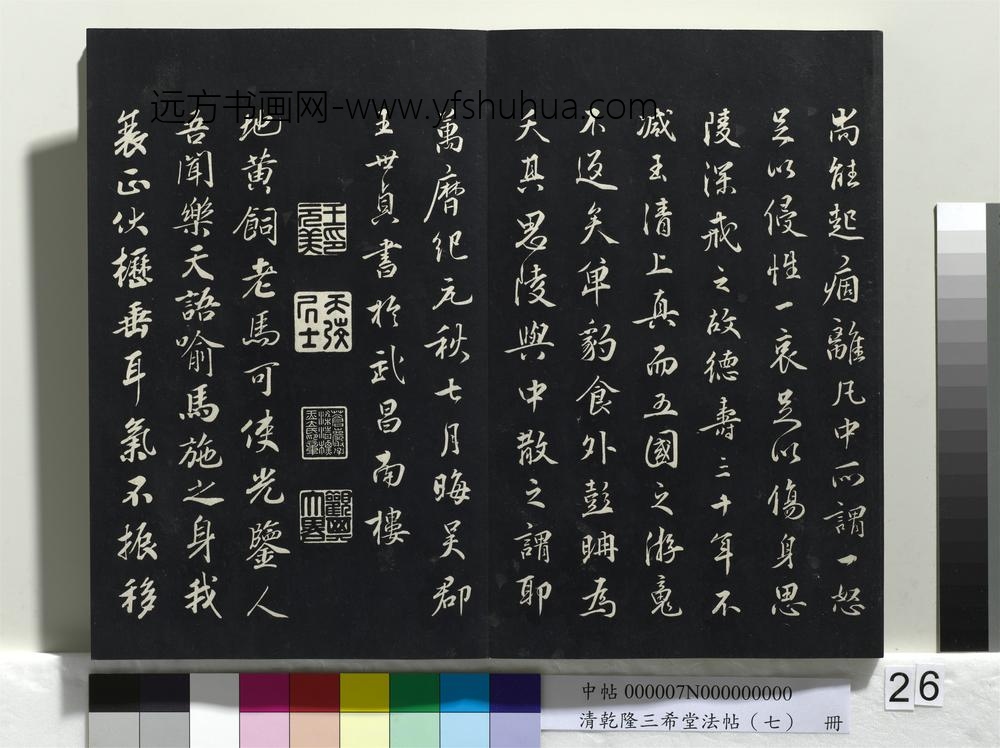 尚能起痼離凡中所謂一怒
足以侵性一哀足以傷身思
陵深戒之故德壽三十年不
減玉清上真而五國之游竟
不返矣單豹食外彭聃為
夭其思陵與中散之謂耶
萬曆紀元秋七月晦吳郡
王世貞書於武昌南樓
王印元美
天弢居士
地黃飼老馬可使光鑒人
吾聞樂天語喻馬施之身我
衰正伏櫪垂耳氣不振移
远方书画网-www.yfshuhua.com
中帖 000007N000000000
清乾隆三希堂法帖（七） 冊
26